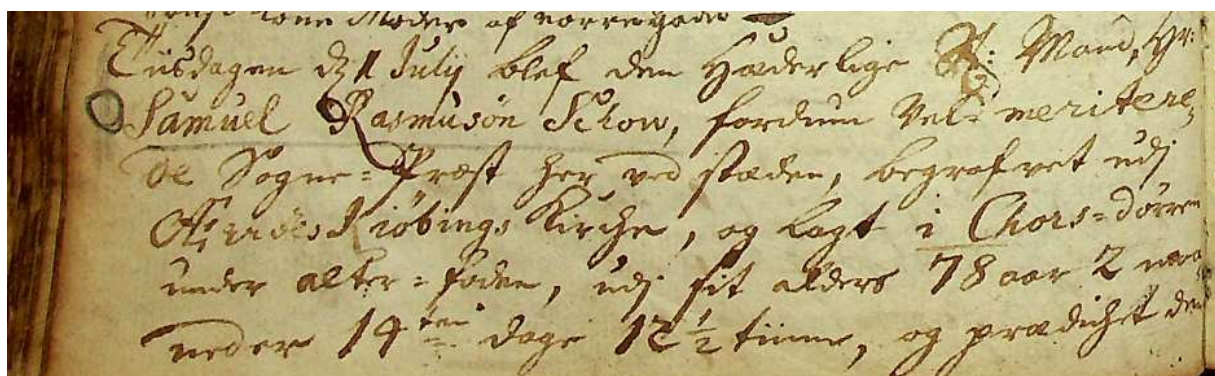 Kone Moder af Nørregade
Tiisdagen d. 1 July blef den Hæderlige Mand, Hr:
Samuel Rasmusön Schow, fordum Vel meritere,
de Sogne=Præst her ved stæden, begrafvet udj
Kiöbings Kirche, og lagt i Chors=dörren
under alter=foden, udj sit alders 78 aar 2 maa
neder 14 ten dage 12 ½ tiime, og prædichet den